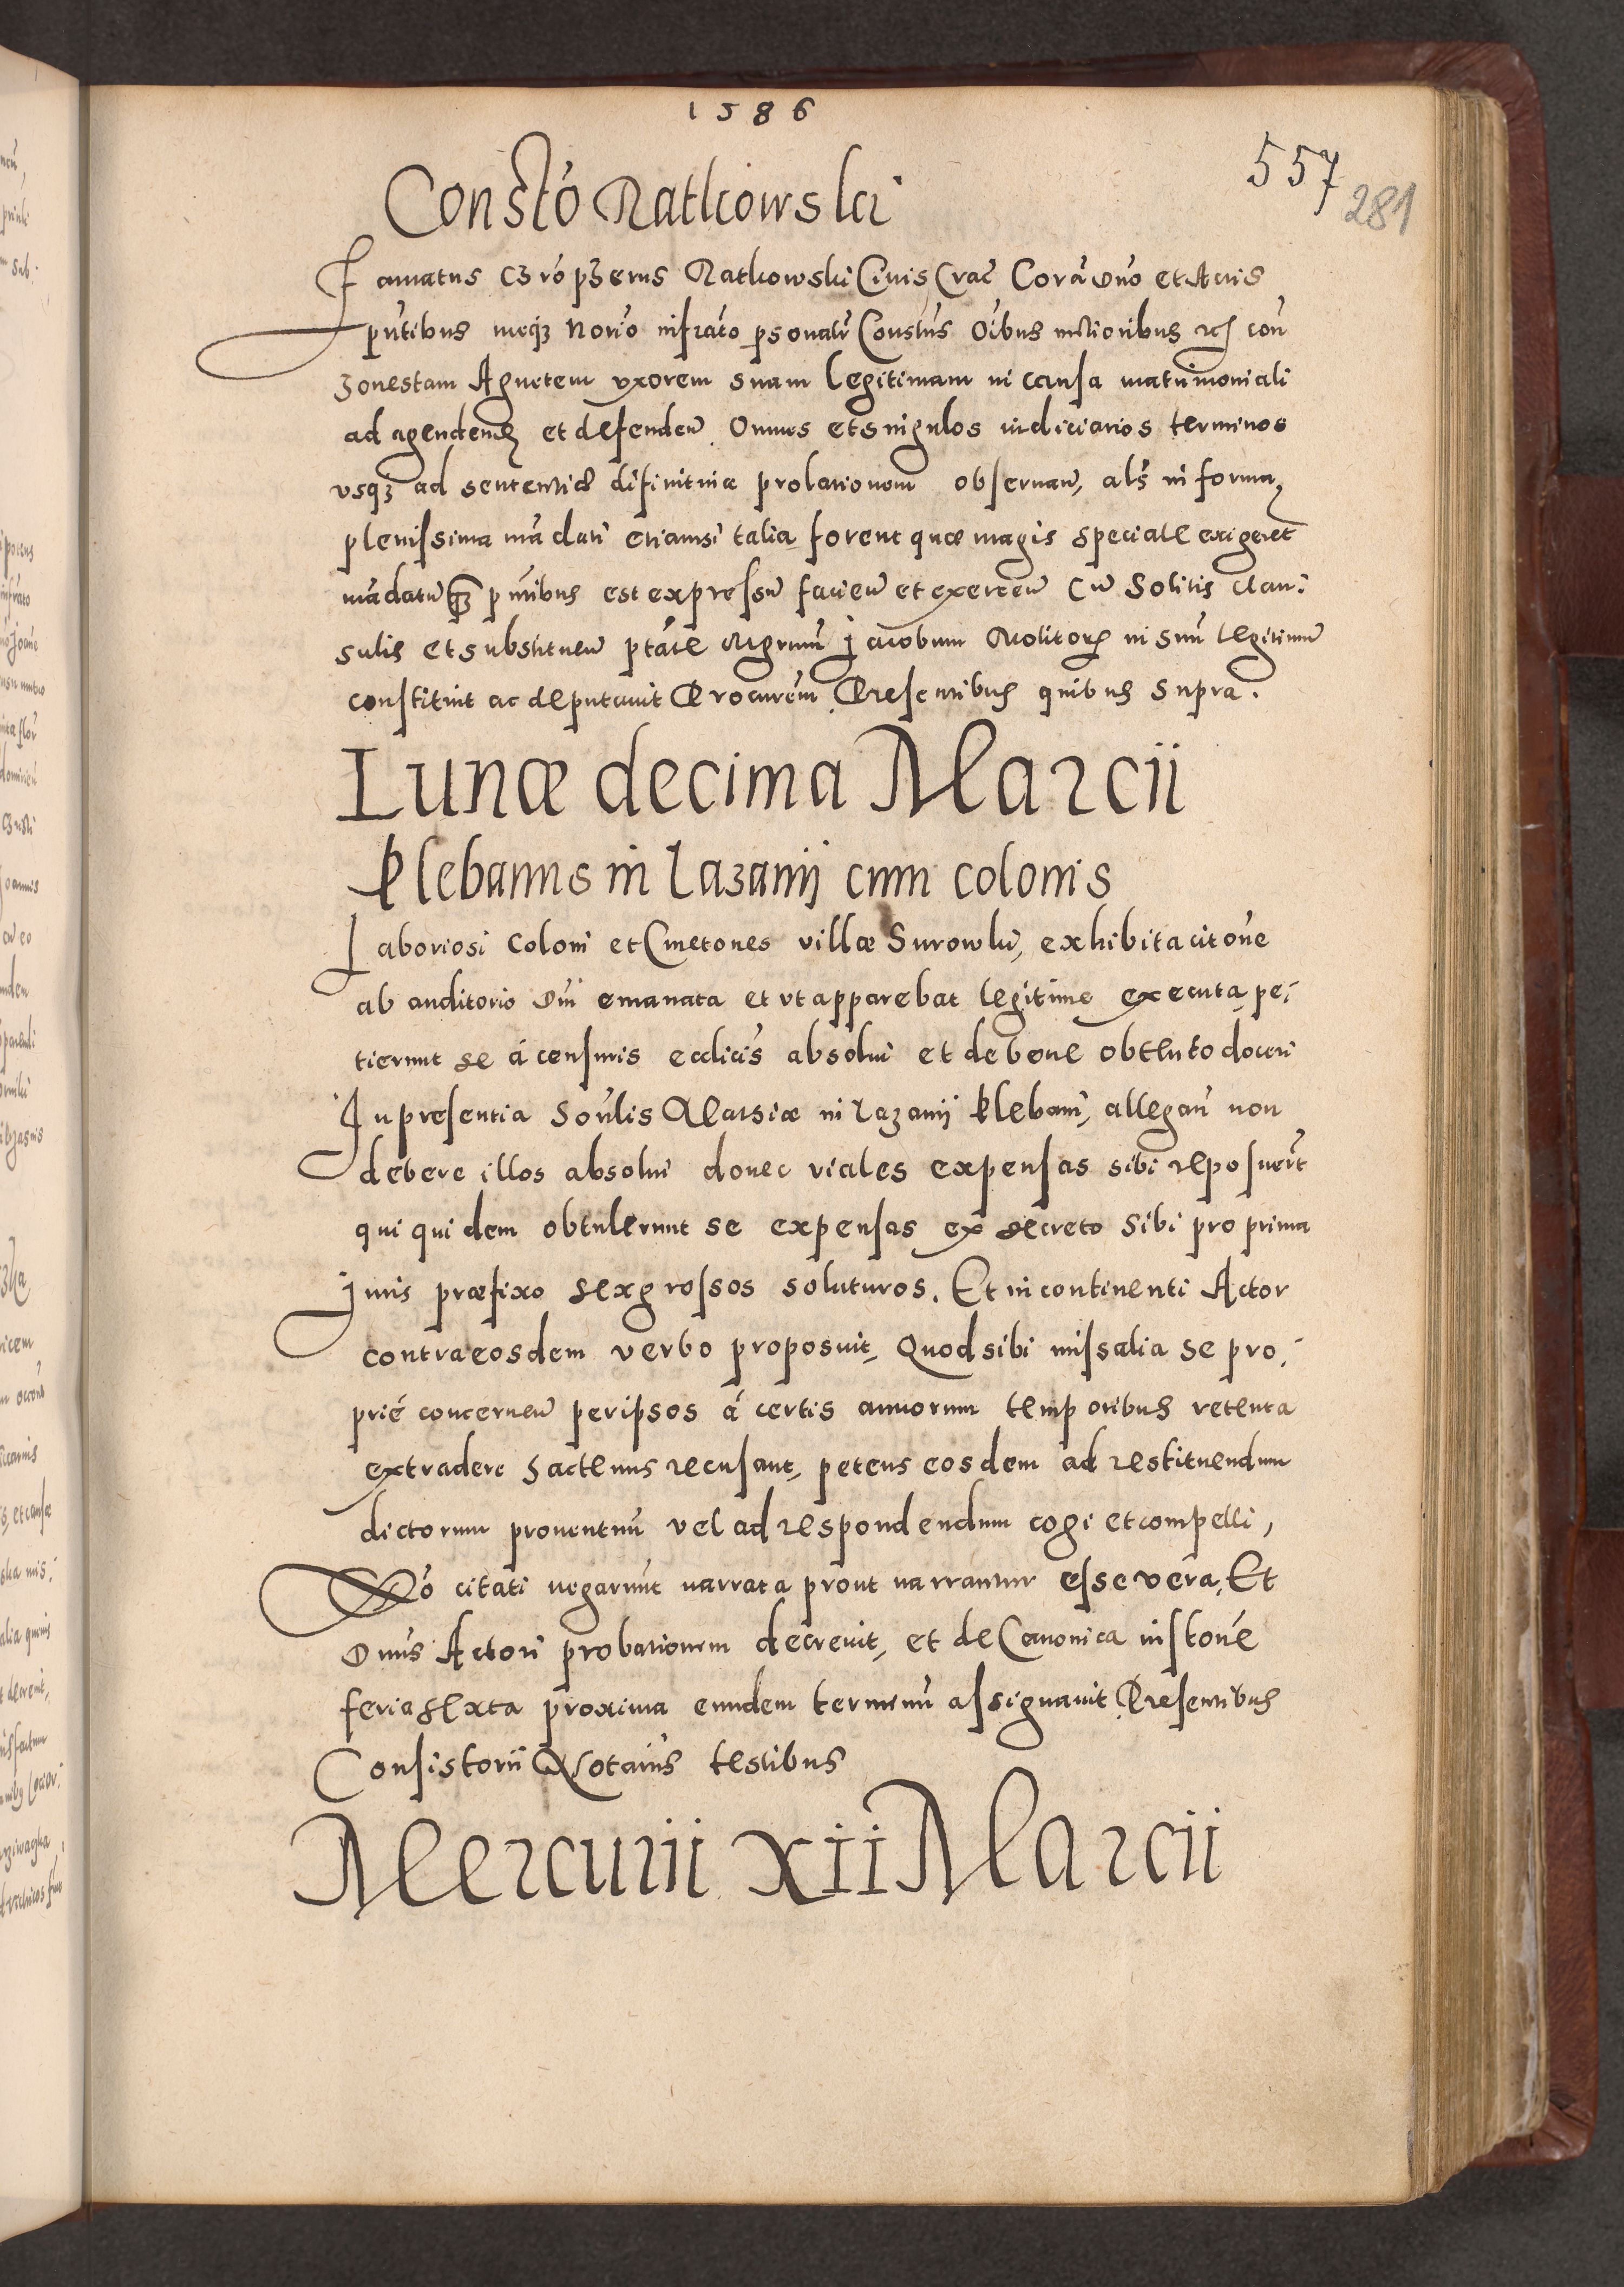 1586
557
281
Constō Ratkowski
Famatus Chrōphorus Ratkowski Civis Crac̄ Corā Dn̄o et Actis
pn̄tibus meq3 Norīo infrātō psonalr̄ Constus Oībus mlioribus con̄
honestam Agnetem vxorem suam legitimam in causa matrimoniali
ad agenden et defenden̄ Omnes et singulos iudiciarios terminos
vsq3 ad sententiæ difinitiuæ prolationem obseruan̄, als̄ in forma
plenissima mādati etiamsi talia forent quæ magis speciale exigeret
mādatū pn̄tibus est expressū facien̄ et exercen̄ Cū Solitis clau-
sulis et substituen̄ ptāte Mgrum Jacobum Molitorē in suū legitimū
constituit ac deputauit Procurēm Presentibus quibus supra.
Lunæ decima Marcii
Plebanus in Lazanij cum colonis
Laboriosi Coloni et Cmetones villæ Surowki, exhibita citōne
ab auditorio Dni emanata et vt apparebat legitime executa pe-
tierunt se á censuris eccliciis absolui et de bene obtento doceri
In presentia Soūlis Mathiæ in Lazanij Plebani, allegan̄ non
debere illos absolui donec viales expensas sibi reposuer̄t
qui quidem obtulerunt se expensas ex decreto Sibi pro prima
Juris præfixo sex grossos soluturos. Et in continenti Actor
contra eosdem verbo proposuit, Quod sibi missalia se pro-
prié concernen̄ per ipsos á certis annorum temporibus retenta
extradere hactenus recusant, petens eosdem ad restituendum
dictorum prouentuū vel ad respondendum cogi et compelli,
Qō citati negarunt narrata prout narrantur esse vera, Et
Dnus Actori probationem decreuit, et de Canonica instōne
feria sexta proxima eundem terminū assignauit Presentibus
Consistorii Notariis testibus
Mercurii XII Marcii